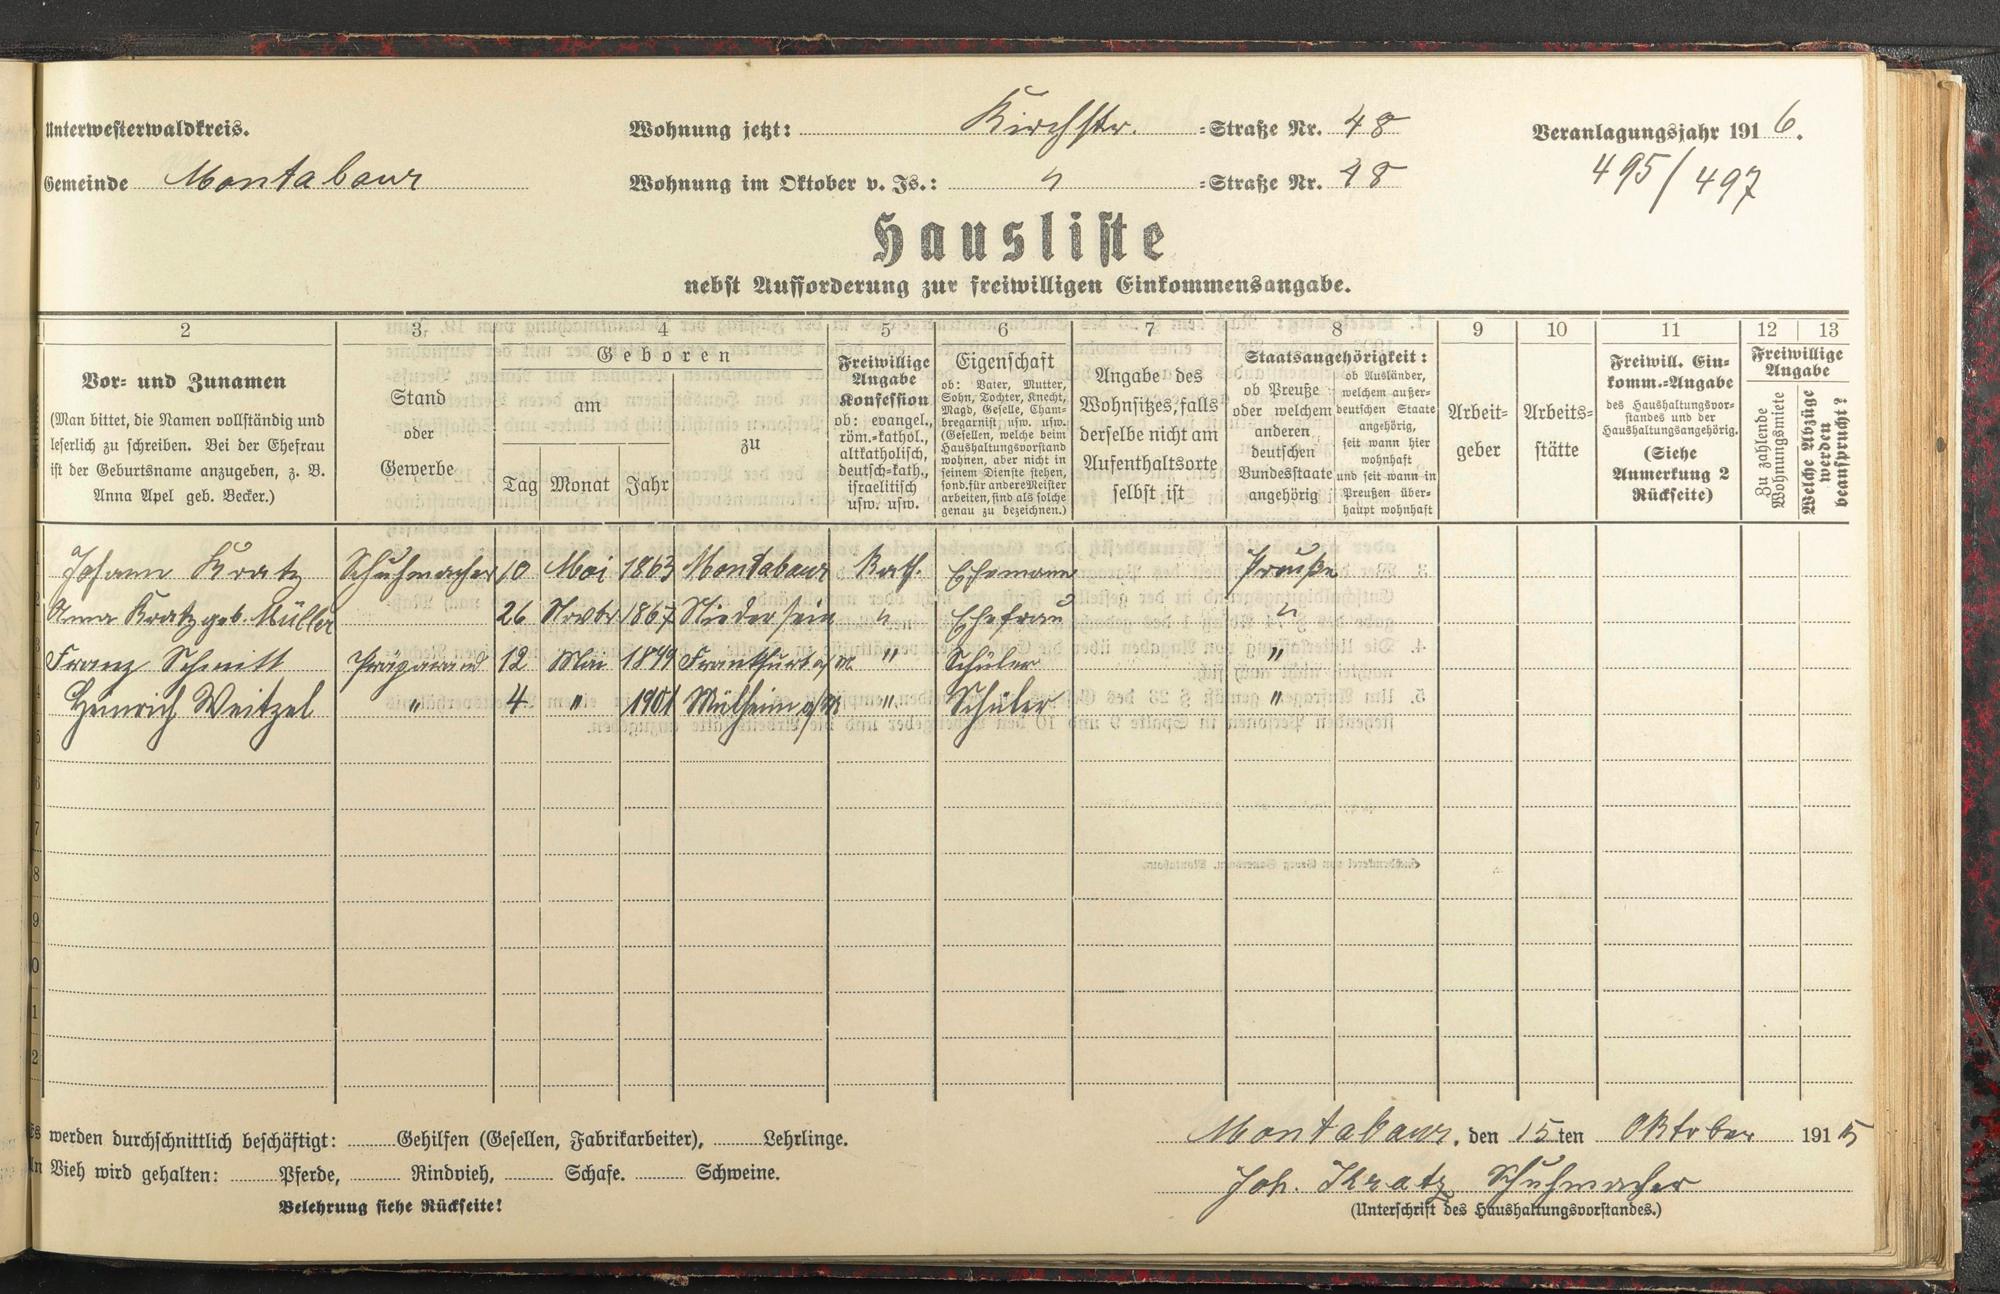 Unterwesterwaldkreis.
Wohnung jetzt: Kirchstr. =Straße Nr. 48
Veranlagungsjahr 1916.
Gemeinde Montabaur
Wohnung im Oktober v. Js.: " =Straße Nr. 48
495/497
Hausliste
nebst Aufforderung zur freiwilligen Einkommensangabe.
2 3 4 5 6 7 8 9 10 11 12 13
Vor= und Zunamen
(Man bittet, die Namen vollständig und
leserlich zu schreiben. Bei der Ehefrau
ist der Geburtsname anzugeben, z. B.
Anna Apel geb. Becker.)
Stand
oder
Gewerbe
Geboren
am
Tag Monat Jahr
zu
Freiwillige
Angabe
Konfession
ob: evangel.,
röm.=kathol.,
altkatholisch,
deutsch=kath.,
israelitisch
usw. usw.
Eigenschaft
ob: Vater, Mutter,
Sohn, Tochter, Knecht,
Magd, Geselle, Cham=
bregarnist usw. usw.
(Gesellen, welche beim
Haushaltungsvorstand
wohnen, aber nicht in
seinem Dienste stehen,
sond. für andere Meister
arbeiten, sind als solche
genau zu bezeichnen.)
Angabe des
Wohnsitzes, falls
derselbe nicht am
Aufenthaltsorte
selbst ist
Staatsangehörigkeit:
ob Preuße
oder welchem
anderen
deutschen
Bundesstaate
angehörig
ob Ausländer,
welchem außer=
deutschen Staate
angehörig,
seit wann hier
wohnhaft
und seit wann in
Preußen über=
haupt wohnhaft
Arbeit=
geber
Arbeits=
stätte
Freiwill. Ein=
komm.=Angabe
des Haushaltungsvor=
standes und der
Haushaltungsangehörig.
(Siehe
Anmerkung 2
Rückseite)
Freiwillige
Angabe
Zu zahlende
Wohnungsmiete
Welche Abzüge
werden
beansprucht?
1 Johann Kratz Schuhmacher 10 Mai 1863 Montabaur Kath. Ehemann Preuße
2 Anna Kratz geb. Müller 26 Novbr 1867 " Ehefrau "
3 Franz Schmitt Präparand 12 Mai Frankfurt a/M. " Schüler "
4 Heinrich Weitzel " 4 " 1901 Mülheim " Schüler "
5
6
7
8
9
0
1
2
werden durchschnittlich beschäftigt: Gehilfen (Gesellen, Fabrikarbeiter), Lehrlinge.
Montabaur, den 15ten Oktober 1915
An Vieh wird gehalten: Pferde, Rindvieh, Schafe. Schweine.
Joh. Kratz Schuhmacher
Belehrung siehe Rückseite!
(Unterschrift des Haushaltungsvorstandes.)